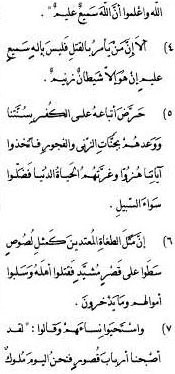 الله واعلموا أنَّ اللَّهَ سَمِيعٌ عليمٌ " .
٤) ألا إنَّ مَنْ يأمرُ بالقتلِ فليسَ بإلهٍ سميعٍ
عليمٍ إنْ هوَ إلَّا شيطانٌ زنيمٌ .
٥) حَرَّضَ أتباعَهُ على الكفرِ بسُنَّتنا
ووَعدهُم بجنَّاتِ الزنى والفجورِ فاتَّخذوا
آياتنا هزوًا وغرَّتهمُ الحياةُ الدنيا فضلُّوا
سواءَ السبيلِ .
٦) إنَّ مثلَ الطغاةِ المعتدينَ كمثلِ لصوصٍ
سَطوا على قصرٍ مُشيَّدٍ فقتلوا أهلَهُ وسلبوا
أموالهم وما يدّخرون .
٧) واستحيَوا نساءَهم وقالوا : " لقد
أصبحنا أربابَ قصورٍ فنحنُ اليومَ ملوكٌ